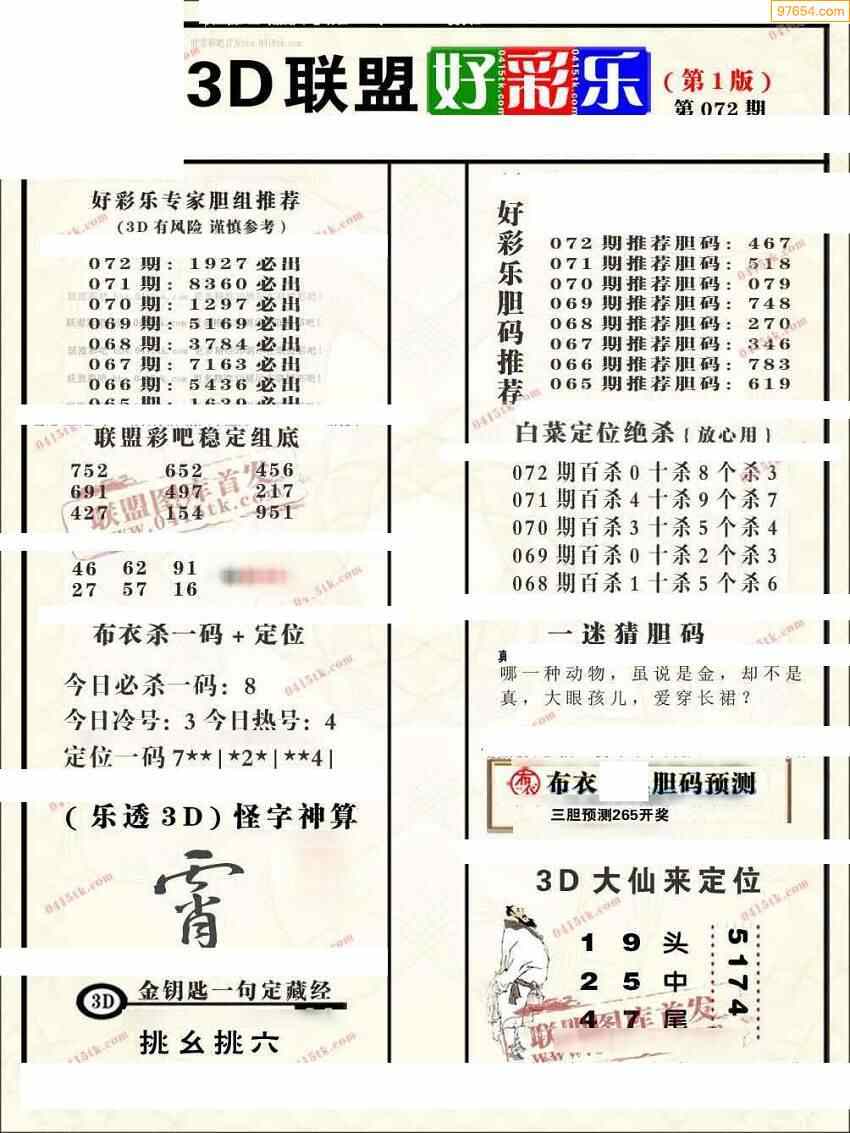 97654.com
3D联盟好彩乐
(第1版)
第072期
好彩乐专家胆组推荐
(3D有风险 谨慎参考)
072期: 1927必出
071期: 8360必出
070期: 1297必出
069期: 5169必出
068期: 3784必出
067期: 7163必出
066期: 5436必出
065期: 1639必出
联盟彩吧稳定组底
752 652 456
691 497 217
427 154 951
46 62 91
27 57 16
布衣杀一码+定位
今日必杀一码: 8
今日冷号: 3 今日热号: 4
定位一码 7**|*2*|**4|
(乐透3D)怪字神算
霄
3D 金钥匙一句定藏经
挑幺挑六
好彩乐胆码推荐
072期推荐胆码: 467
071期推荐胆码: 518
070期推荐胆码: 079
069期推荐胆码: 748
068期推荐胆码: 270
067期推荐胆码: 346
066期推荐胆码: 783
065期推荐胆码: 619
白菜定位绝杀{放心用}
072期百杀0十杀8个杀3
071期百杀4十杀9个杀7
070期百杀3十杀5个杀4
069期百杀0十杀2个杀3
068期百杀1十杀5个杀6
一迷猜胆码
哪一种动物，虽说是金，却不是
真，大眼孩儿，爱穿长裙？
布衣 布衣 胆码预测
三胆预测265开奖
3D大仙来定位
1 9 头
2 5 中
4 7 尾
5174
联盟图库首发
www.0415tk.com
联盟图库首发
0415tk.com